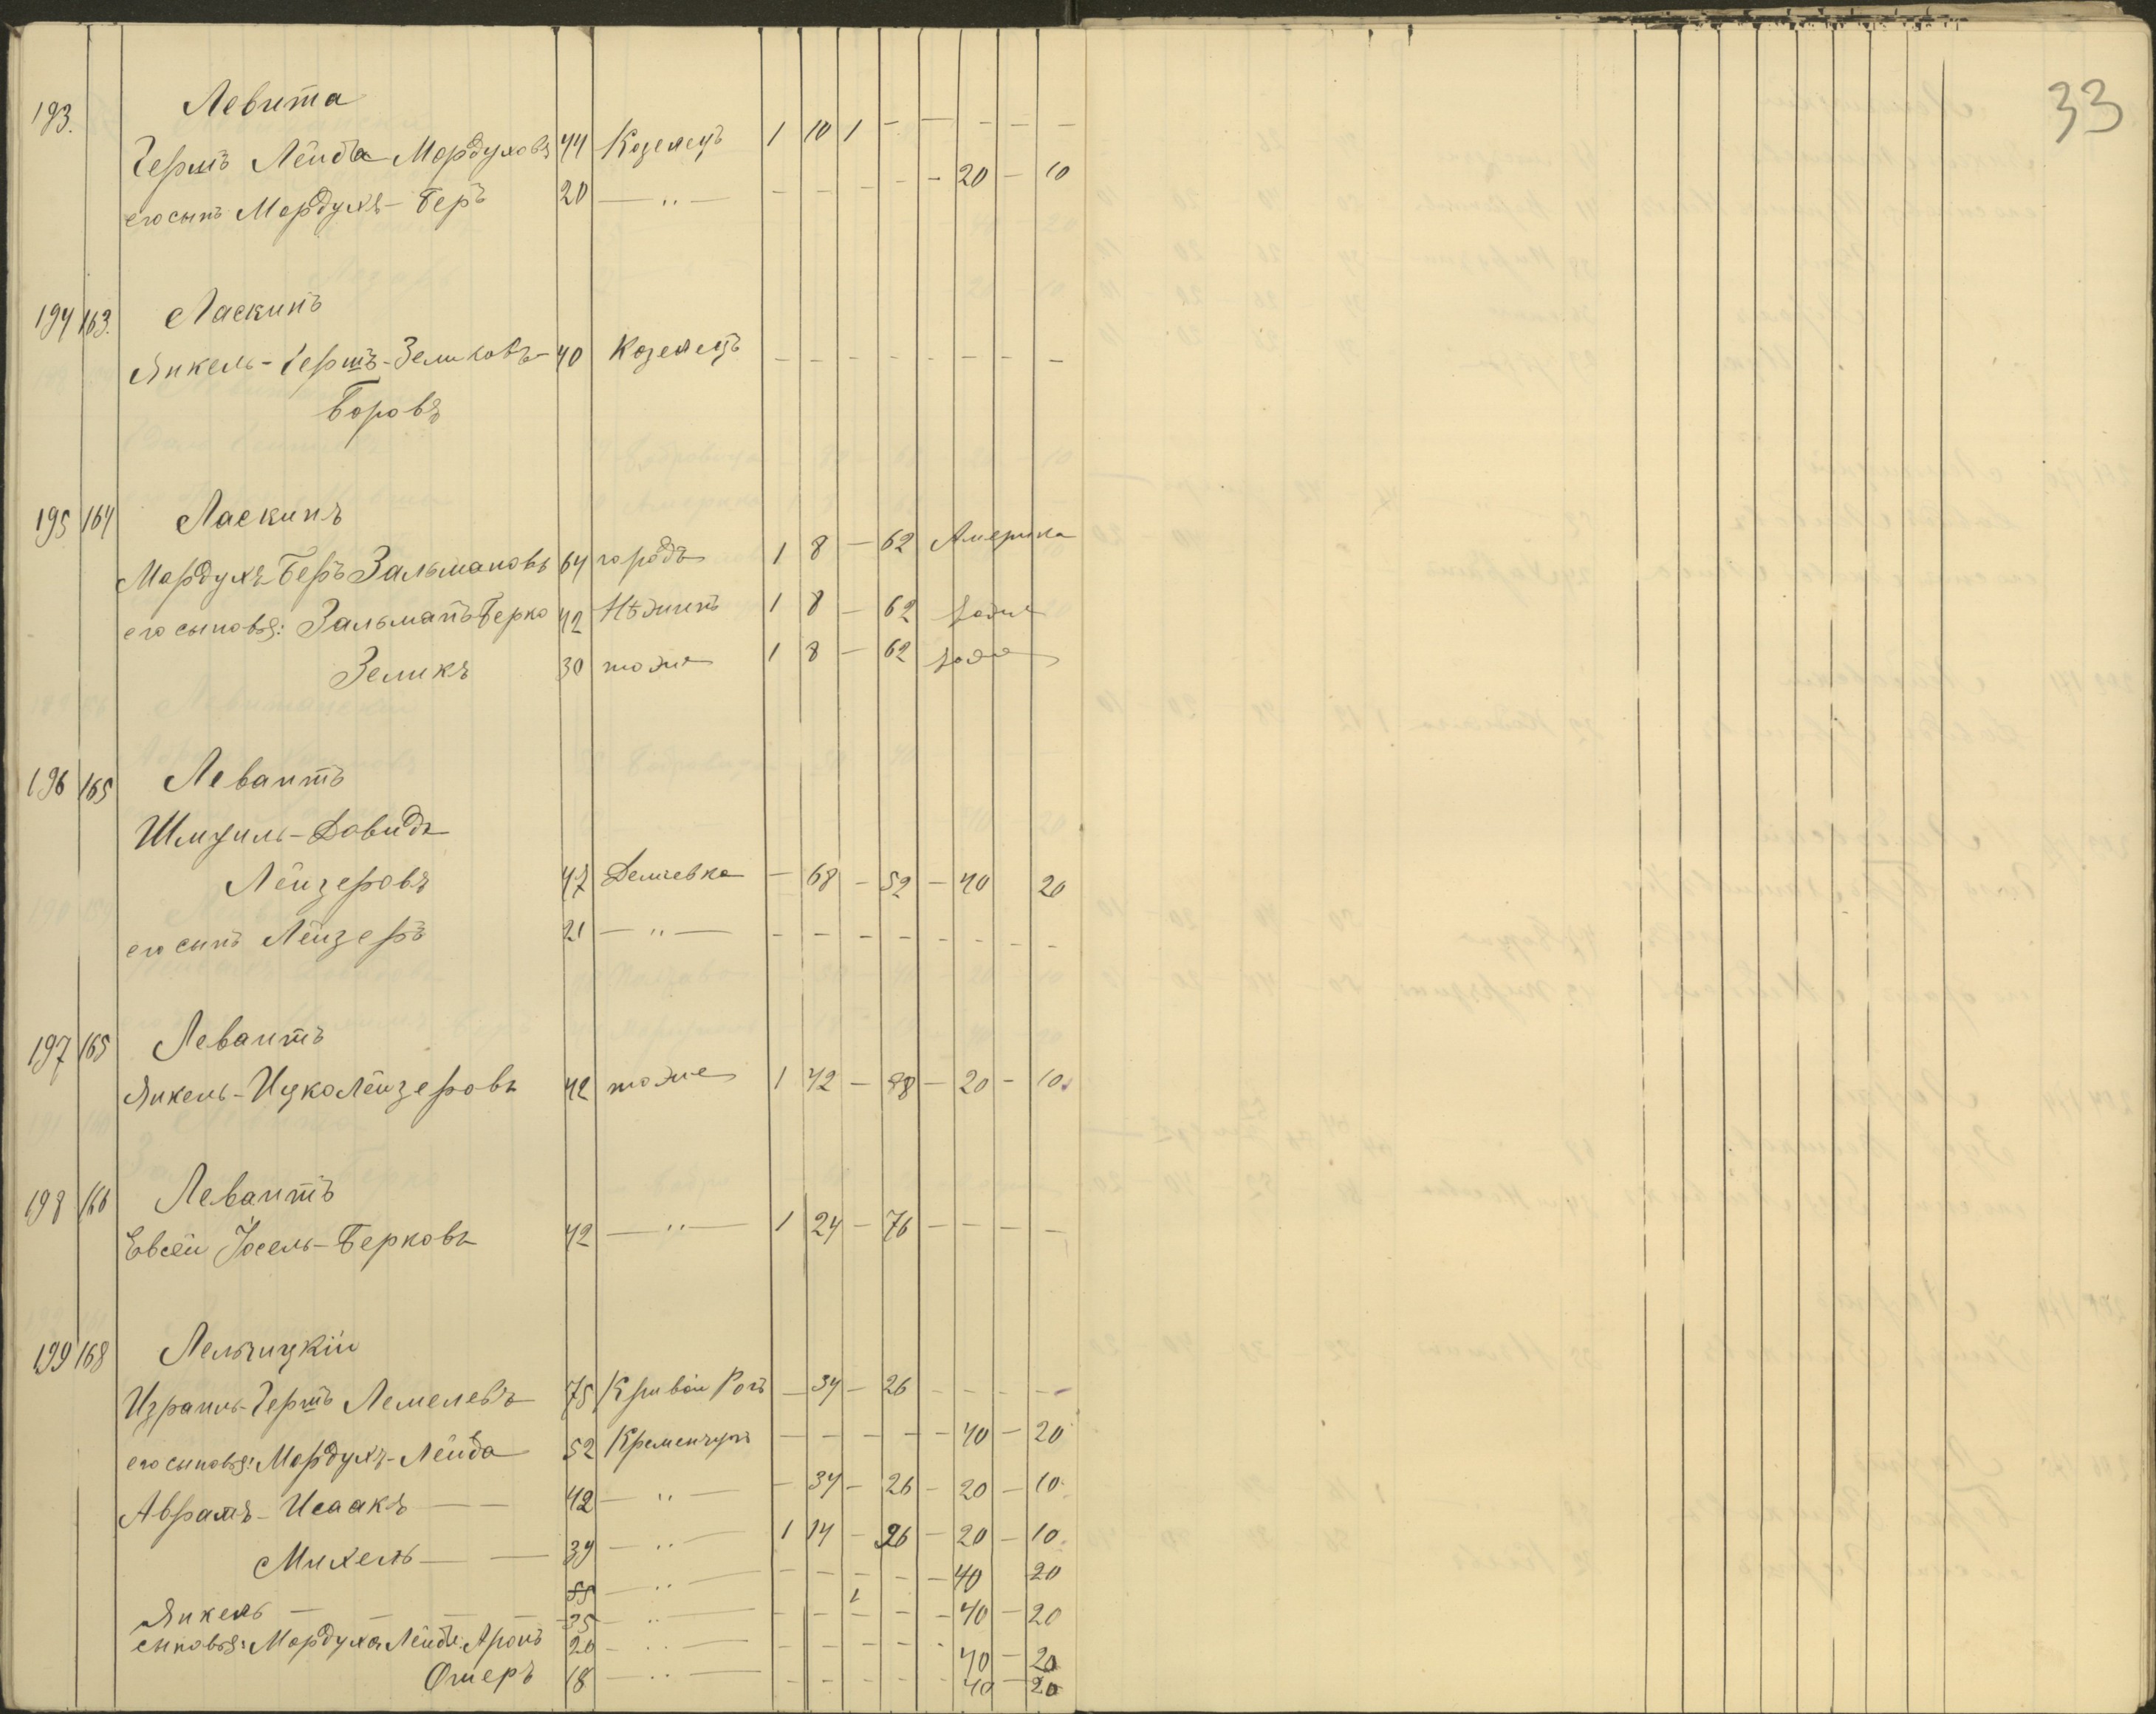 33
193. Левита
Гершъ Лейба Мордуховъ 44 Козелецъ 1 10 1 - - - - -
его сынъ Мордухъ-Беръ 20 — " — - - - - - 20 - 10
194 163. Ласкинъ
Янкель-Гершъ-Зеликовъ- 40 Козелецъ - - - - - - - -
Боровъ
195 164 Ласкинъ
Мордухъ-Беръ Зальмановъ 64 городъ 1 8 - 62 Америка
его сыновья: Зальманъ Берко 42 Нѣжинъ 1 8 - 62 тоже
Зеликъ 30 тоже 1 8 - 62 тоже
196 165 Левантъ
Шмуиль-Довидъ
Лейзеровъ 47 Демievка - 68 - 52 - 40 20
его сынъ Лейзеръ 21 — " — - - - - - - - -
197 165 Левантъ
Янкель-Ицко Лейзеровъ 42 тоже 1 42 - 88 - 20 - 10.
198 166 Левантъ
Евсей Іосель-Берковъ 42 — " — 1 24 - 76 - - - -
199 168 Лельчицкій
Израиль-Гершъ Лемелевъ 75 Кривой Рогъ - 34 - 26 - - - -
его сыновья: Мордухъ-Лейба 52 Кременчугъ - - - - - 40 - 20
Абрамъ-Исаакъ — — 42 — " — - 34 - 26 - 20 - 10.
Михель — — 39 — " — 1 14 - 26 - 20 - 10.
55 — " — - - - - - 40 20
Янкель — — — 35 — " — - - - - - 40 - 20
сыновья: Мордухъ Лейба Аронъ 20 - " — - - - - - 40 - 20
Ошеръ 18 — " — - - - - - 40 - 20